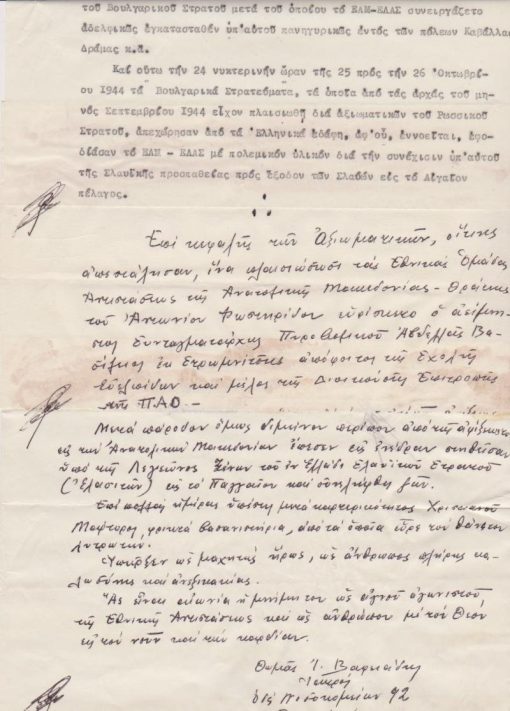 του Βουλγαρικού Στρατού μετά του οποίου τό ΕΑΜ-ΕΛΑΣ συνειργάζετο
άδελφικῶς ἐγκατασταθέν ὑπ'αὐτοῦ πανηγυρικῶς ἐντός τῶν πόλεων Καβάλλας
Δράμας κ.ἄ.
Καί οὕτω τήν 24 νυκτερινήν ὥραν τῆς 25 πρός τήν 26 Ὀκτωβρί-
ου 1944 τά Βουλγαρικά Στρατεύματα, τά ὁποῖα ἀπό τάς ἀρχάς τοῦ μη-
νός Σεπτεμβρίου 1944 εἶχον πλαισιωθῆ διά ἀξιωματικῶν τοῦ Ρωσσικοῦ
Στρατοῦ, ἀπεχώρησαν ἀπό τά Ἑλληνικά ἐδάφη, ἀφ'οὗ, ἐννοεῖται, ἐφο-
δίασαν τό ΕΑΜ - ΕΛΑΣ μέ πολεμικόν ὑλικόν διά τήν συνέχισιν ὑπ'αὐτοῦ
τῆς Σλαυϊκῆς προσπαθείας πρός ἔξοδον τῶν Σλαύων εἰς τό Αἰγαῖον
πέλαγος.
Ἐπί κεφαλῆς τῶν Ἀξιωματικῶν, οἵτινες
ἀπεστάλησαν, ἵνα πλαισιώσωσι τάς Ἐθνικάς Ὁμάδας
Ἀντιστάσεως τῆς Ἀνατολικῆς Μακεδονίας - Θράκης
τοῦ Ἀντωνίου Φωστηρίδου εὑρίσκετο ὁ ἀείμνη-
στος Συνταγματάρχης Πυροβολικοῦ Ἀβδελλᾶς Βα-
σίλειος ἐκ Στρωμνίτσης ἀπόφοιτος τῆς Σχολῆς
Εὐελπίδων καί μέλος τῆς Διοικούσης Ἐπιτροπῆς
τῆς ΠΑΟ -
Μετά πάροδον ὅμως διμήνου περίπου ἀπό τῆς ἀφίξεως
εἰς τήν Ἀνατολικήν Μακεδονίαν ἔπεσεν εἰς ἐνέδραν στηθεῖσαν
ὑπό τῆς Λεγεῶνος Ξένων τοῦ ἐν Ἑλλάδι Στρατοῦ
(Ἐλασιτῶν) εἰς τό Παγγαῖον καί συνελήφθη ζῶν.
Ἐπί πολλάς ἡμέρας ὑπέστη μετά καρτερικότητος Χριστιανοῦ
Μάρτυρος, φρικτά βασανιστήρια, ἀπό τά ὁποῖα εὗρε τόν θάνατον
λυτρωτήν.
Ὑπῆρξεν ὡς μαχητής ἥρως, ὡς ἄνθρωπος πλήρης κα-
λωσύνης καί ἀνεξικακίας.
Ἄς εἶναι αἰωνία ἡ μνήμη του ὡς ἁγνοῦ ἀγωνιστοῦ
τῆς Ἐθνικῆς Ἀντιστάσεως καί ὡς ἀνθρώπου μέ τόν Θεόν
εἰς τόν νοῦν καί τήν καρδίαν.
Θωμᾶς Ἰ. Βαφειάδης
Ἰατρός
ὁδός Νοσοκομείων 92